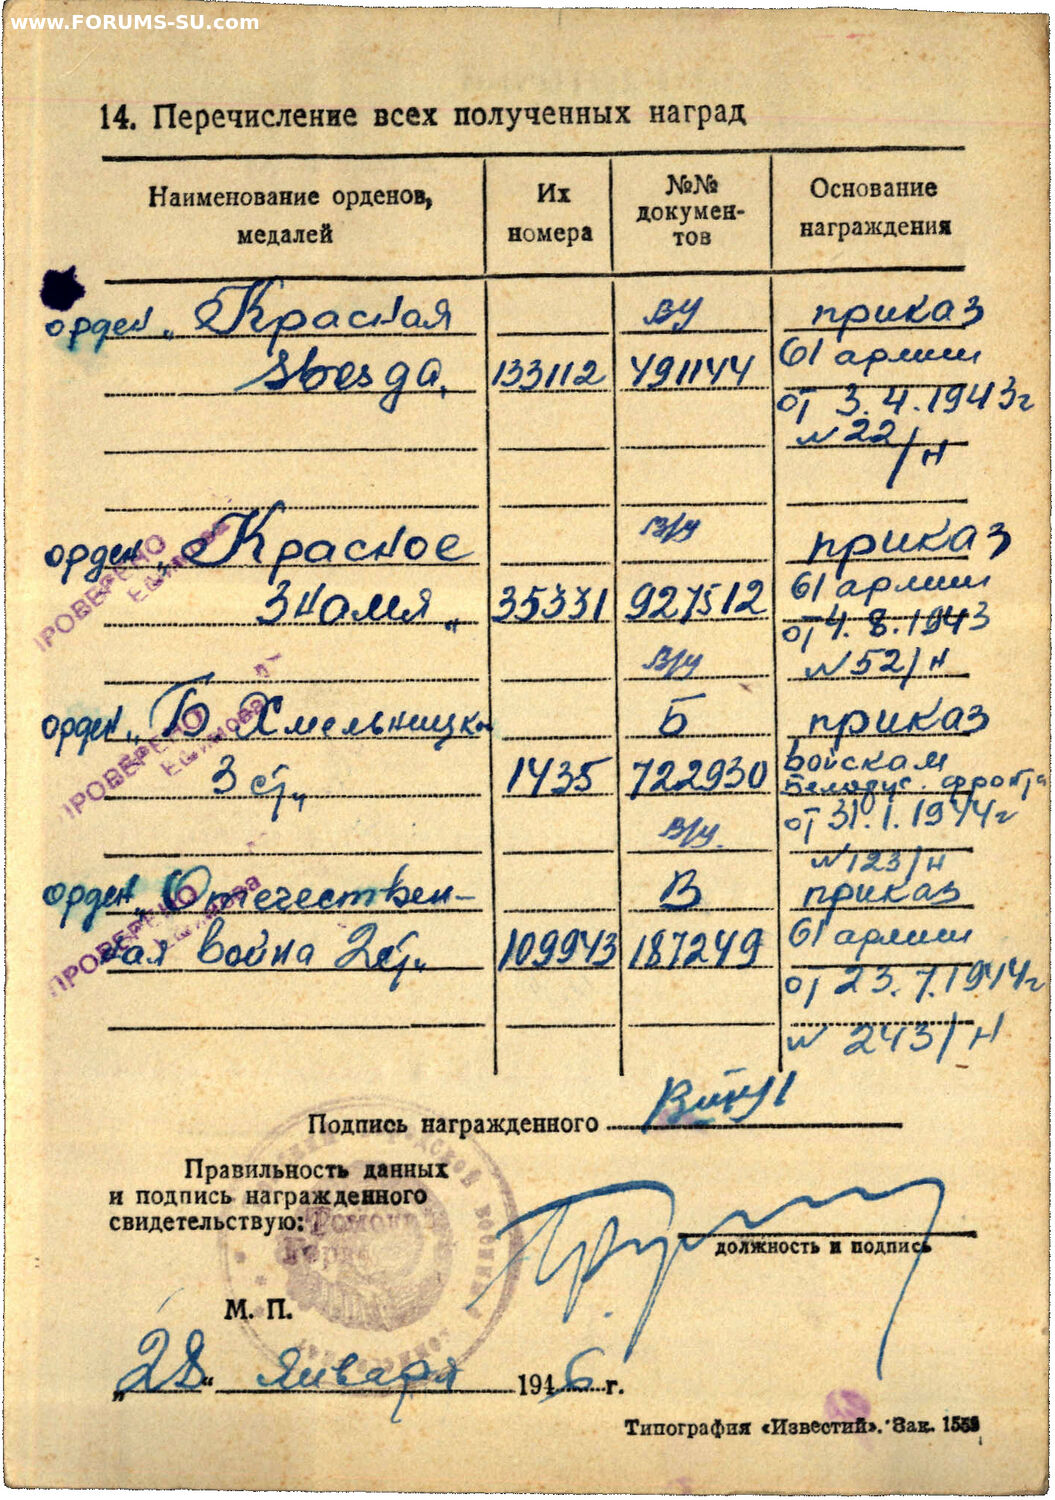 www.FORUMS-SU.com
14. Перечисление всех полученных наград
Наименование орденов, медалей
Их номера
№№ докумен-тов
Основание награждения
орден „Красная в/у приказ
Звезда„ 133112 491144 61 армии
от 3.4.1943г
№22/н
орден „Красное в/у приказ
Знамя„ 35331 927512 61 армии
от 4.8.1943
в/у №52/н
орден „Б Хмельницко Б приказ
3 ст„ 1435 722930 войскам
Белорус. фронта
в/у от 31.1.1944г
№123/н
орден „Отечествен- В приказ
ная война 2ст„ 109943 187249 61 армии
от 23.7.1944г
№ 243/н
ПРОВЕРЕНО
Ефимова
ПРОВЕРЕНО
Ефимова
ПРОВЕРЕНО
Ефимова
Подпись награжденного
Правильность данных
и подпись награжденного
свидетельствую:
должность и подпись
М. П.
„28“ января 1946 г.
Типография «Известий». Зак. 1559